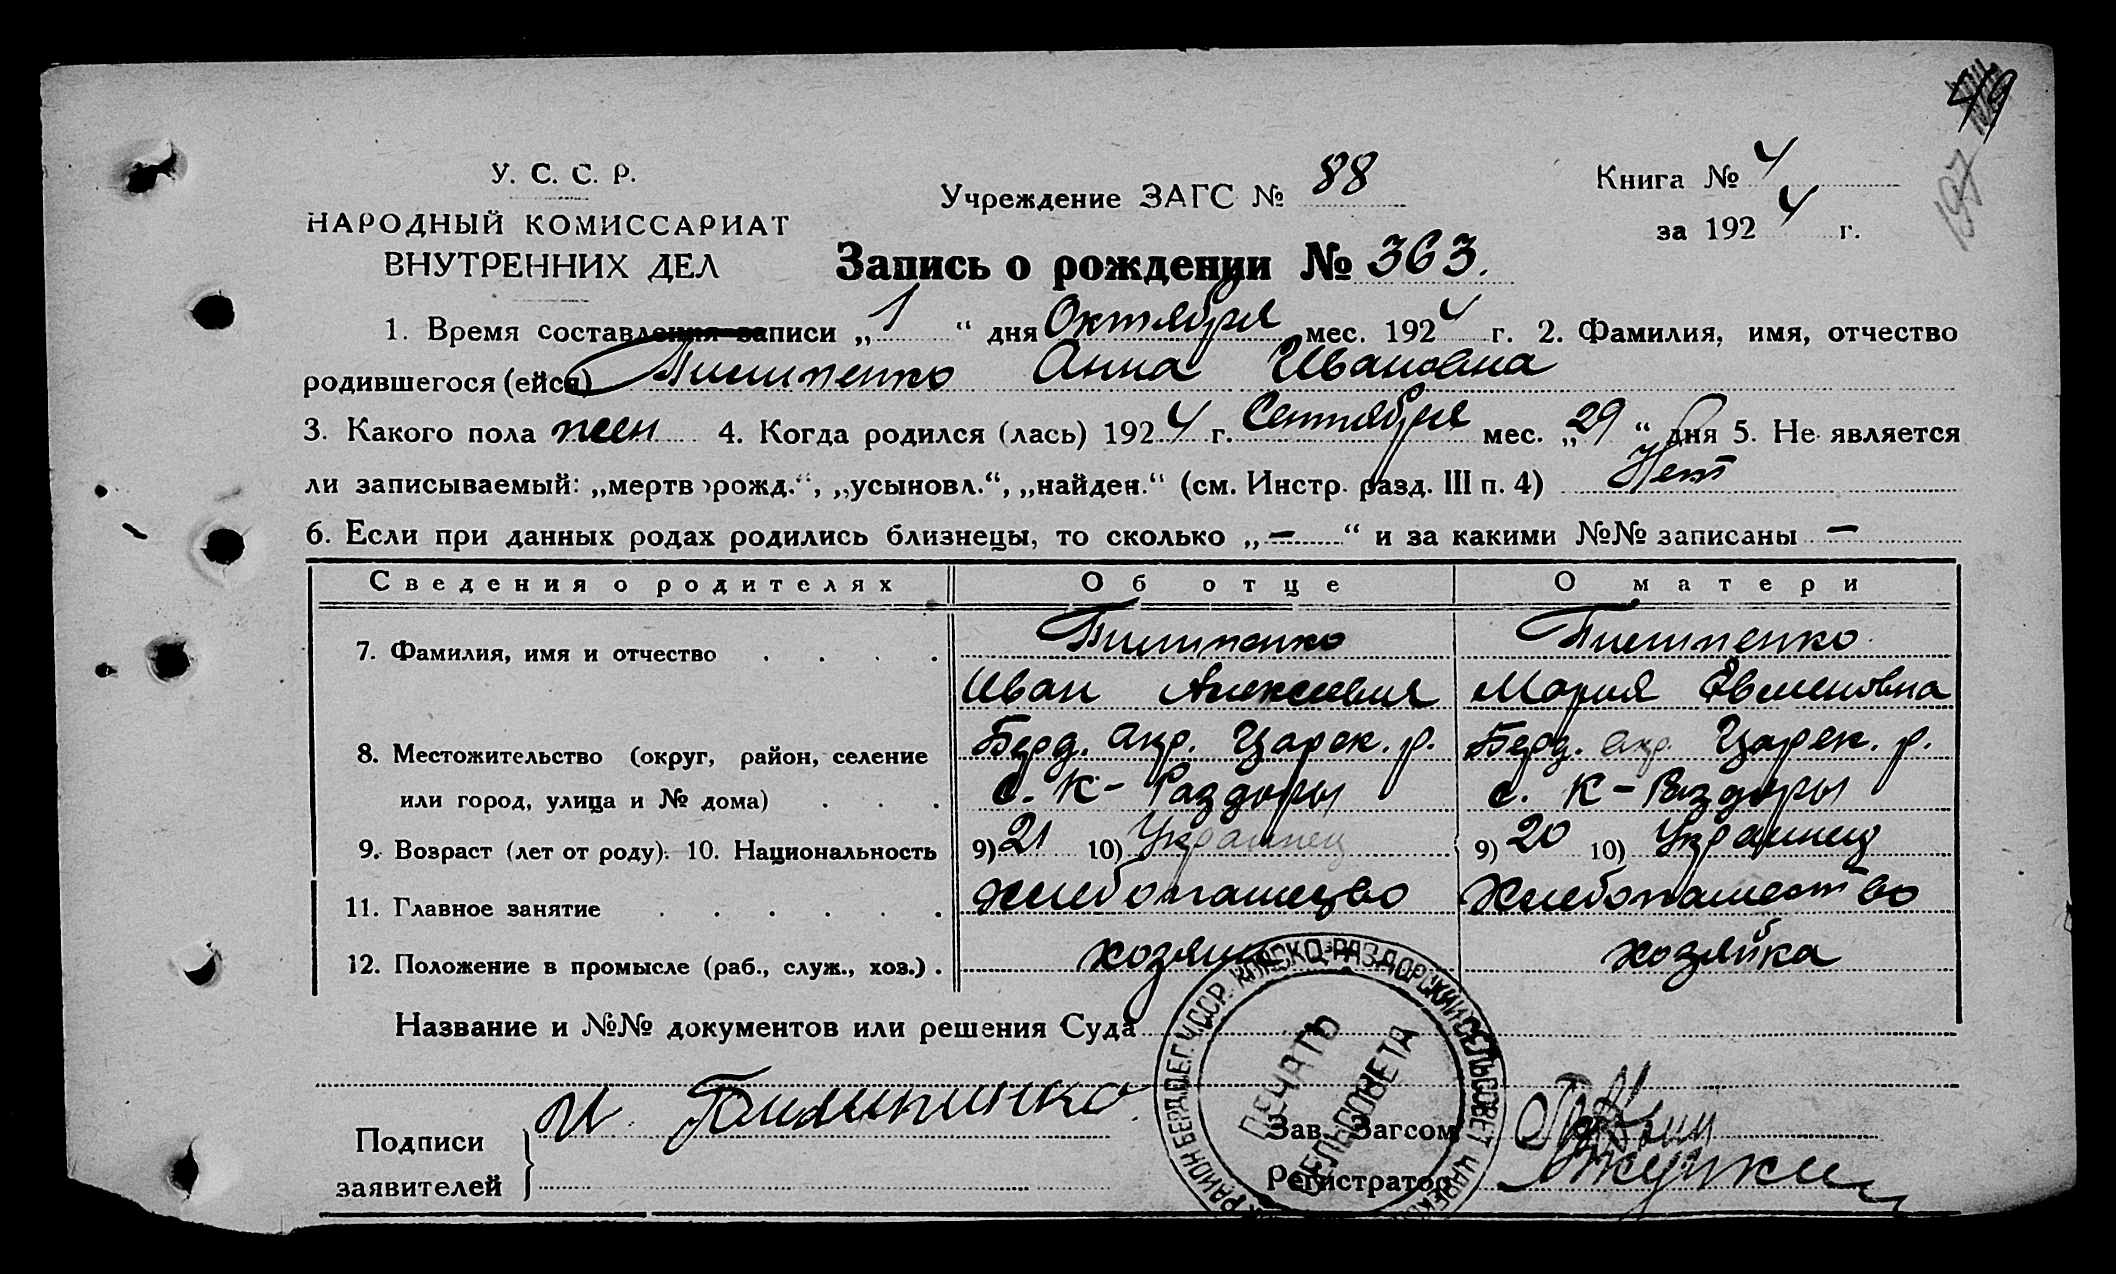 49
197
У. С. С. Р.
НАРОДНЫЙ КОМИССАРИАТ
ВНУТРЕННИХ ДЕЛ
Учреждение ЗАГС № 88
Книга № 4
за 192 4 г.
Запись о рождении № 363.
1. Время составления записи „ 1 “ дня Октября мес. 192 4 г. 2. Фамилия, имя, отчество
родившегося (ейся) Анна Ивановна
3. Какого пола жен 4. Когда родился (лась) 192 4 г. Сентября мес. „ 29 “ дня 5. Не является
ли записываемый: „мертворожд.“, „усыновл.“, „найден.“ (см. Инстр. разд. III п. 4) Нет
6. Если при данных родах родились близнецы, то сколько „ — “ и за какими №№ записаны —
Сведения о родителях Об отце О матери
7. Фамилия, имя и отчество . . . .
Иван Алексеевич Мария
8. Местожительство (округ, район, селение Берд. окр. Царек. р. Берд. окр. Царек. р.
или город, улица и № дома) . . . с. К-Раздоры с. К-Раздоры
9. Возраст (лет от роду). 10. Национальность 9) 21 10) Украинец 9) 20 10) Украинец
11. Главное занятие . . . . . . Хлебопашество
12. Положение в промысле (раб., служ., хоз.) . хозяин хозяйка
Название и №№ документов или решения Суда
Подписи
заявителей
И
Зав. Загсом
Регистратор
КОЛСКО-РАЗДОРСКИЙ СЕЛЬСОВЕТ
РАЙОН БЕРД.ДЕГ. УССР.
ПЕЧАТЬ
СЕЛЬСОВЕТА